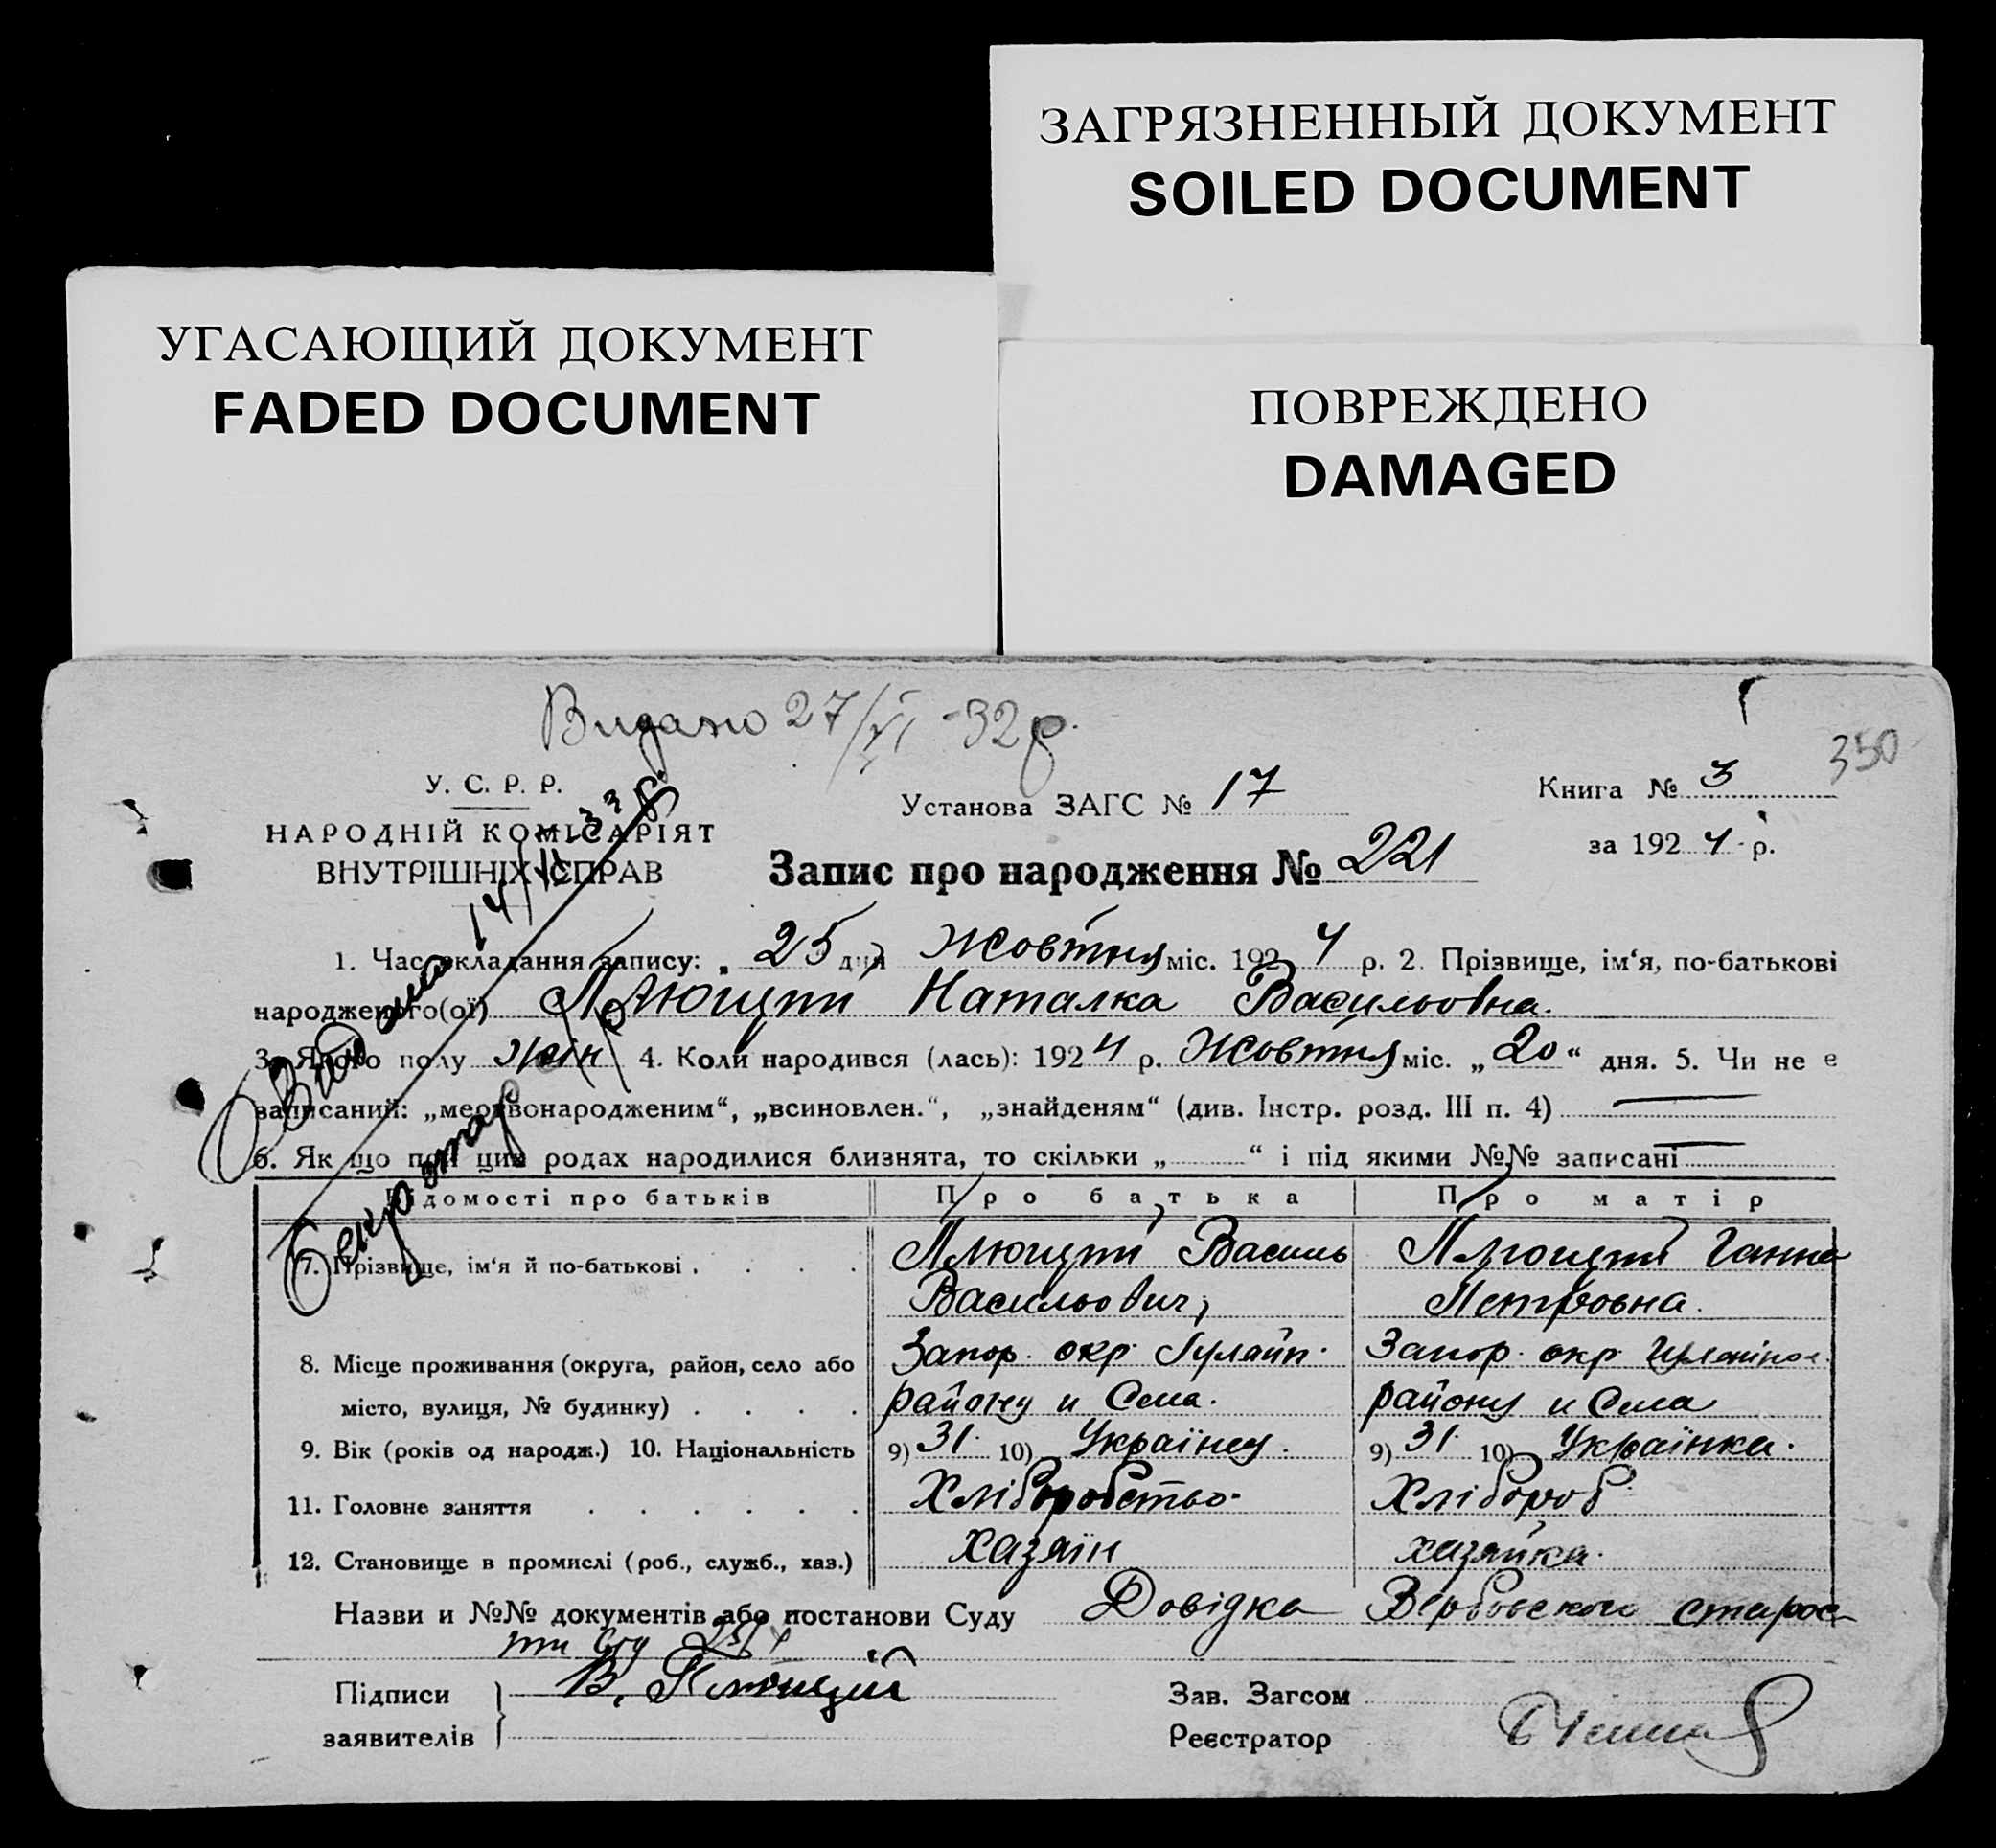 ЗАГРЯЗНЕННЫЙ ДОКУМЕНТ
SOILED DOCUMENT
УГАСАЮЩИЙ ДОКУМЕНТ
FADED DOCUMENT
ПОВРЕЖДЕНО
DAMAGED
Видано 27/XI -32 р.
350
У. С. Р. Р.
НАРОДНІЙ КОМІСАРІЯТ
ВНУТРІШНІХ СПРАВ
Установа ЗАГС № 17
Книга № 3
за 1924 р.
Запис про народження № 221
1. Час складання запису: „ 25 дня Жовтня міс. 1924 р. 2. Прізвище, ім‘я, по-батькові
народженого(ої) Плющий Наталка Васильовна.
3. Якого полу жін 4. Коли народився (лась): 1924 р. Жовтня міс. „20“ дня. 5. Чи не є
записаний: „мертвонародженим“, „всиновлен.“, „знайденям“ (див. Інстр. розд. III п. 4)
6. Як що при цих родах народилися близнята, то скільки „ “ і під якими №№ записані
Відомості про батьків Про батька Про матір
7. Прізвище, ім‘я й по-батькові Плющий Василь Плющий Ганна
Васильович Петровна.
8. Місце проживання (округа, район, село або Запор. окр. Гуляйп. Запор. окр
місто, вулиця, № будинку) району и Села. району и Села
9. Вік (років од народж.) 10. Національність 9) 31. 10) Українец. 9) 31. 10) Українка.
11. Головне заняття Хліборобство. Хлібороб
12. Становище в промислі (роб., служб., хаз.) хазяїн хазяйка.
Назви и №№ документів або постанови Суду Довідка Вербовскои
Підписи В. Плющий Зав. Загсом
заявителів Реєстратор